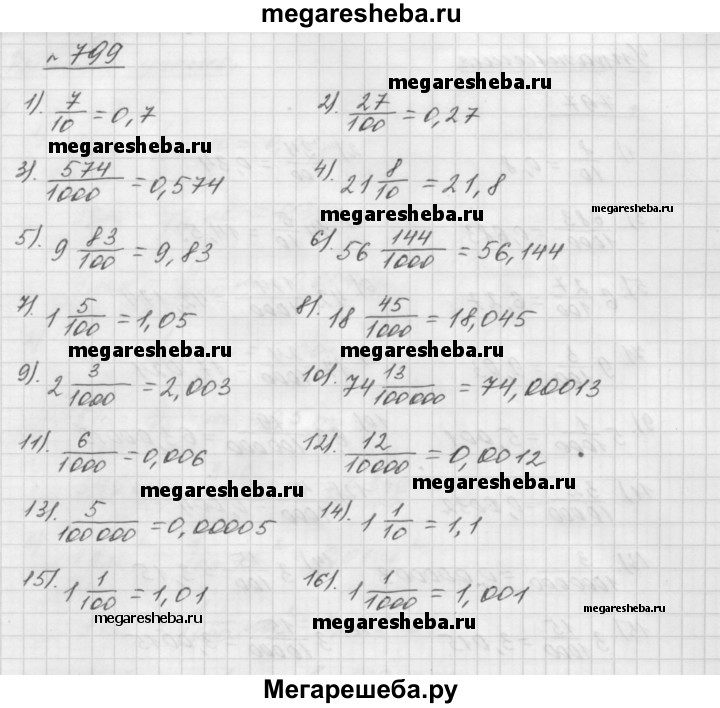 megaresheba.ru
№ 799
megaresheba.ru
1). 7/10 = 0,7 2). 27/100 = 0,27
megaresheba.ru
3). 574/1000 = 0,574 4). 21 8/10 = 21,8
megaresheba.ru megaresheba.ru
5). 9 83/100 = 9,83 6). 56 144/1000 = 56,144
7). 1 5/100 = 1,05 8). 18 45/1000 = 18,045
megaresheba.ru megaresheba.ru
9). 2 3/1000 = 2,003 10). 74 13/100000 = 74,00013
11). 6/1000 = 0,006 12). 12/10000 = 0,0012
megaresheba.ru megaresheba.ru
13). 5/100000 = 0,00005 14). 1 1/10 = 1,1
15). 1 1/100 = 1,01 16). 1 1/1000 = 1,001
megaresheba.ru megaresheba.ru megaresheba.ru
Мегарешеба.ру